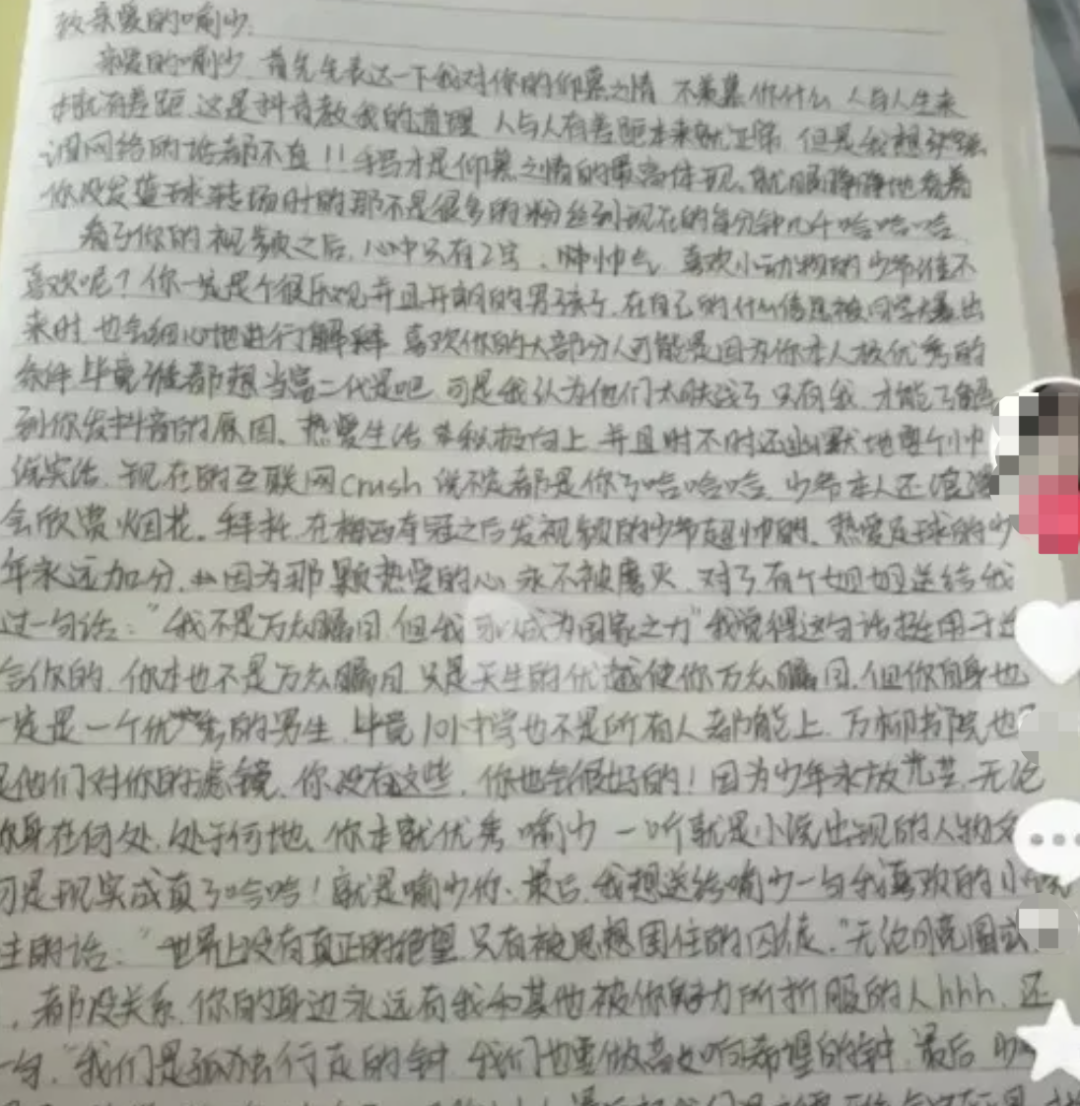 致亲爱的喻少.
亲爱的喻少 首先先表达一下我对你的仰慕之情 不羡慕你什么 人与人生来
就有差距 这是抖音教我的道理 人与人有差距本来就正常 但是我想
网络的话都不真!!手写才是仰慕之情的最高体现、就 静静地看着
你没发篮球转场时的那不是很多的粉丝到现在的每分钟几千哈哈哈
看了你的视频之后, 心中只有2字、帅帅气 喜欢小动物的少爷谁不
喜欢呢?你一定是个很乐观并且开朗的男孩子, 在自己的什么信息被同学爆出
来时 也会细心地进行了解释 喜欢你的大部分人可能是因为你本人极优秀的
条件 毕竟谁都想当富二代是吧 可是我认为他们太肤浅了 只有我 才能了解
到你发抖音的原因、热爱生活 积极向上 并且时不时还幽默地整个小
诚实话 现在的互联网crush 说不定都是你了哈哈哈 少爷本人还浪漫
会欣赏烟花。拜托 在梅西夺冠之后发视频的少爷超帅的、热爱足球的少
年永远加分、 因为那颗热爱的心 永不被磨灭、对了有个姐姐送给我
过一句话:"我不是万众瞩目 但我可以成为国家之力"我觉得这句话挺适用于送
给你的, 你本也不是万众瞩目 只是天生的优越使你万众瞩目, 但你自身也
一定是一个优秀的男生, 毕竟101中学也不是所有人都能上, 万柳书院也
是他们对你的滤镜、你没有这些, 你也会很好的!因为少年永放光芒, 无论
你身在何处, 处于何地、你本就优秀 喻少 一听就是小说出现的人物
可是现实成真了哈哈!就是喻少你、最后 我想送给喻少一句我喜欢的小
的话:"世界上没有真正的绝望 只有被思想困住的囚徒、"无论
, 都没关系, 你的身边永远有我和其他被你魅力所折服的人hhh, 还
一句, "我们是孤独行走的钟 我们也要做 响希望的钟, 最后